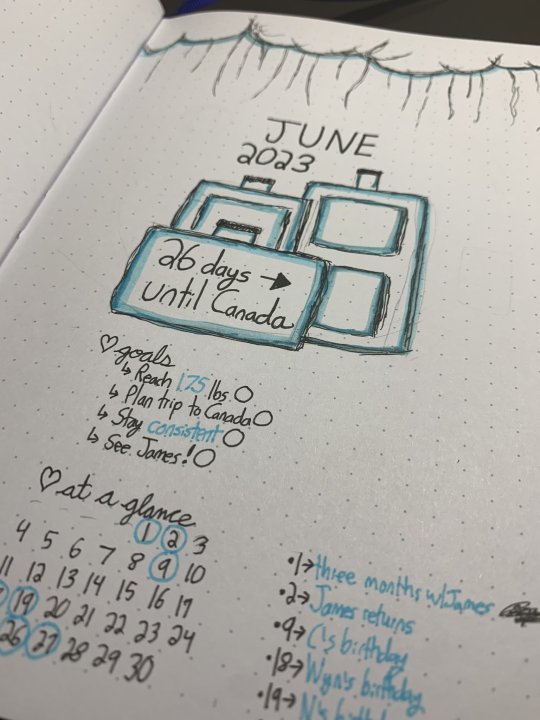 JUNE
2023
26 days →
until Canada
♡ goals
↳ Reach 175 lbs. ○
↳ Plan trip to Canada ○
↳ Stay consistent ○
↳ See James! ○
♡ at a glance
1 2 3
4 5 6 7 8 9 10
11 12 13 14 15 16 17
19 20 21 22 23 24
26 27 28 29 30
•1→ three months w/James
•2→ James returns
•9→ C's birthday
•18→ Wyn's birthday
•19→ N's